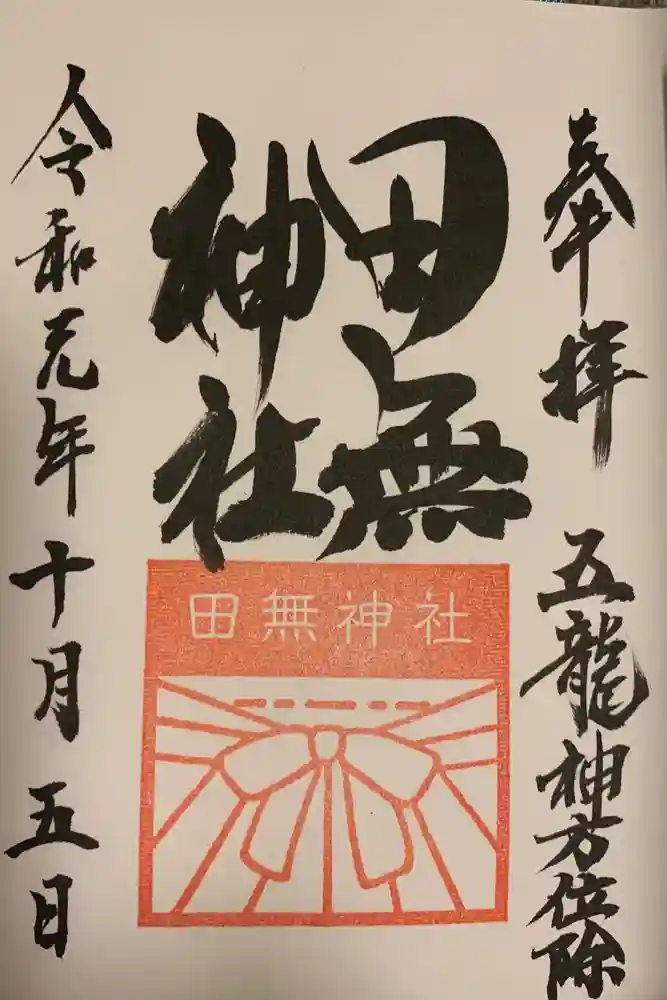 奉拝 五龍神方位除
田無
神社
田無神社
令和元年十月五日